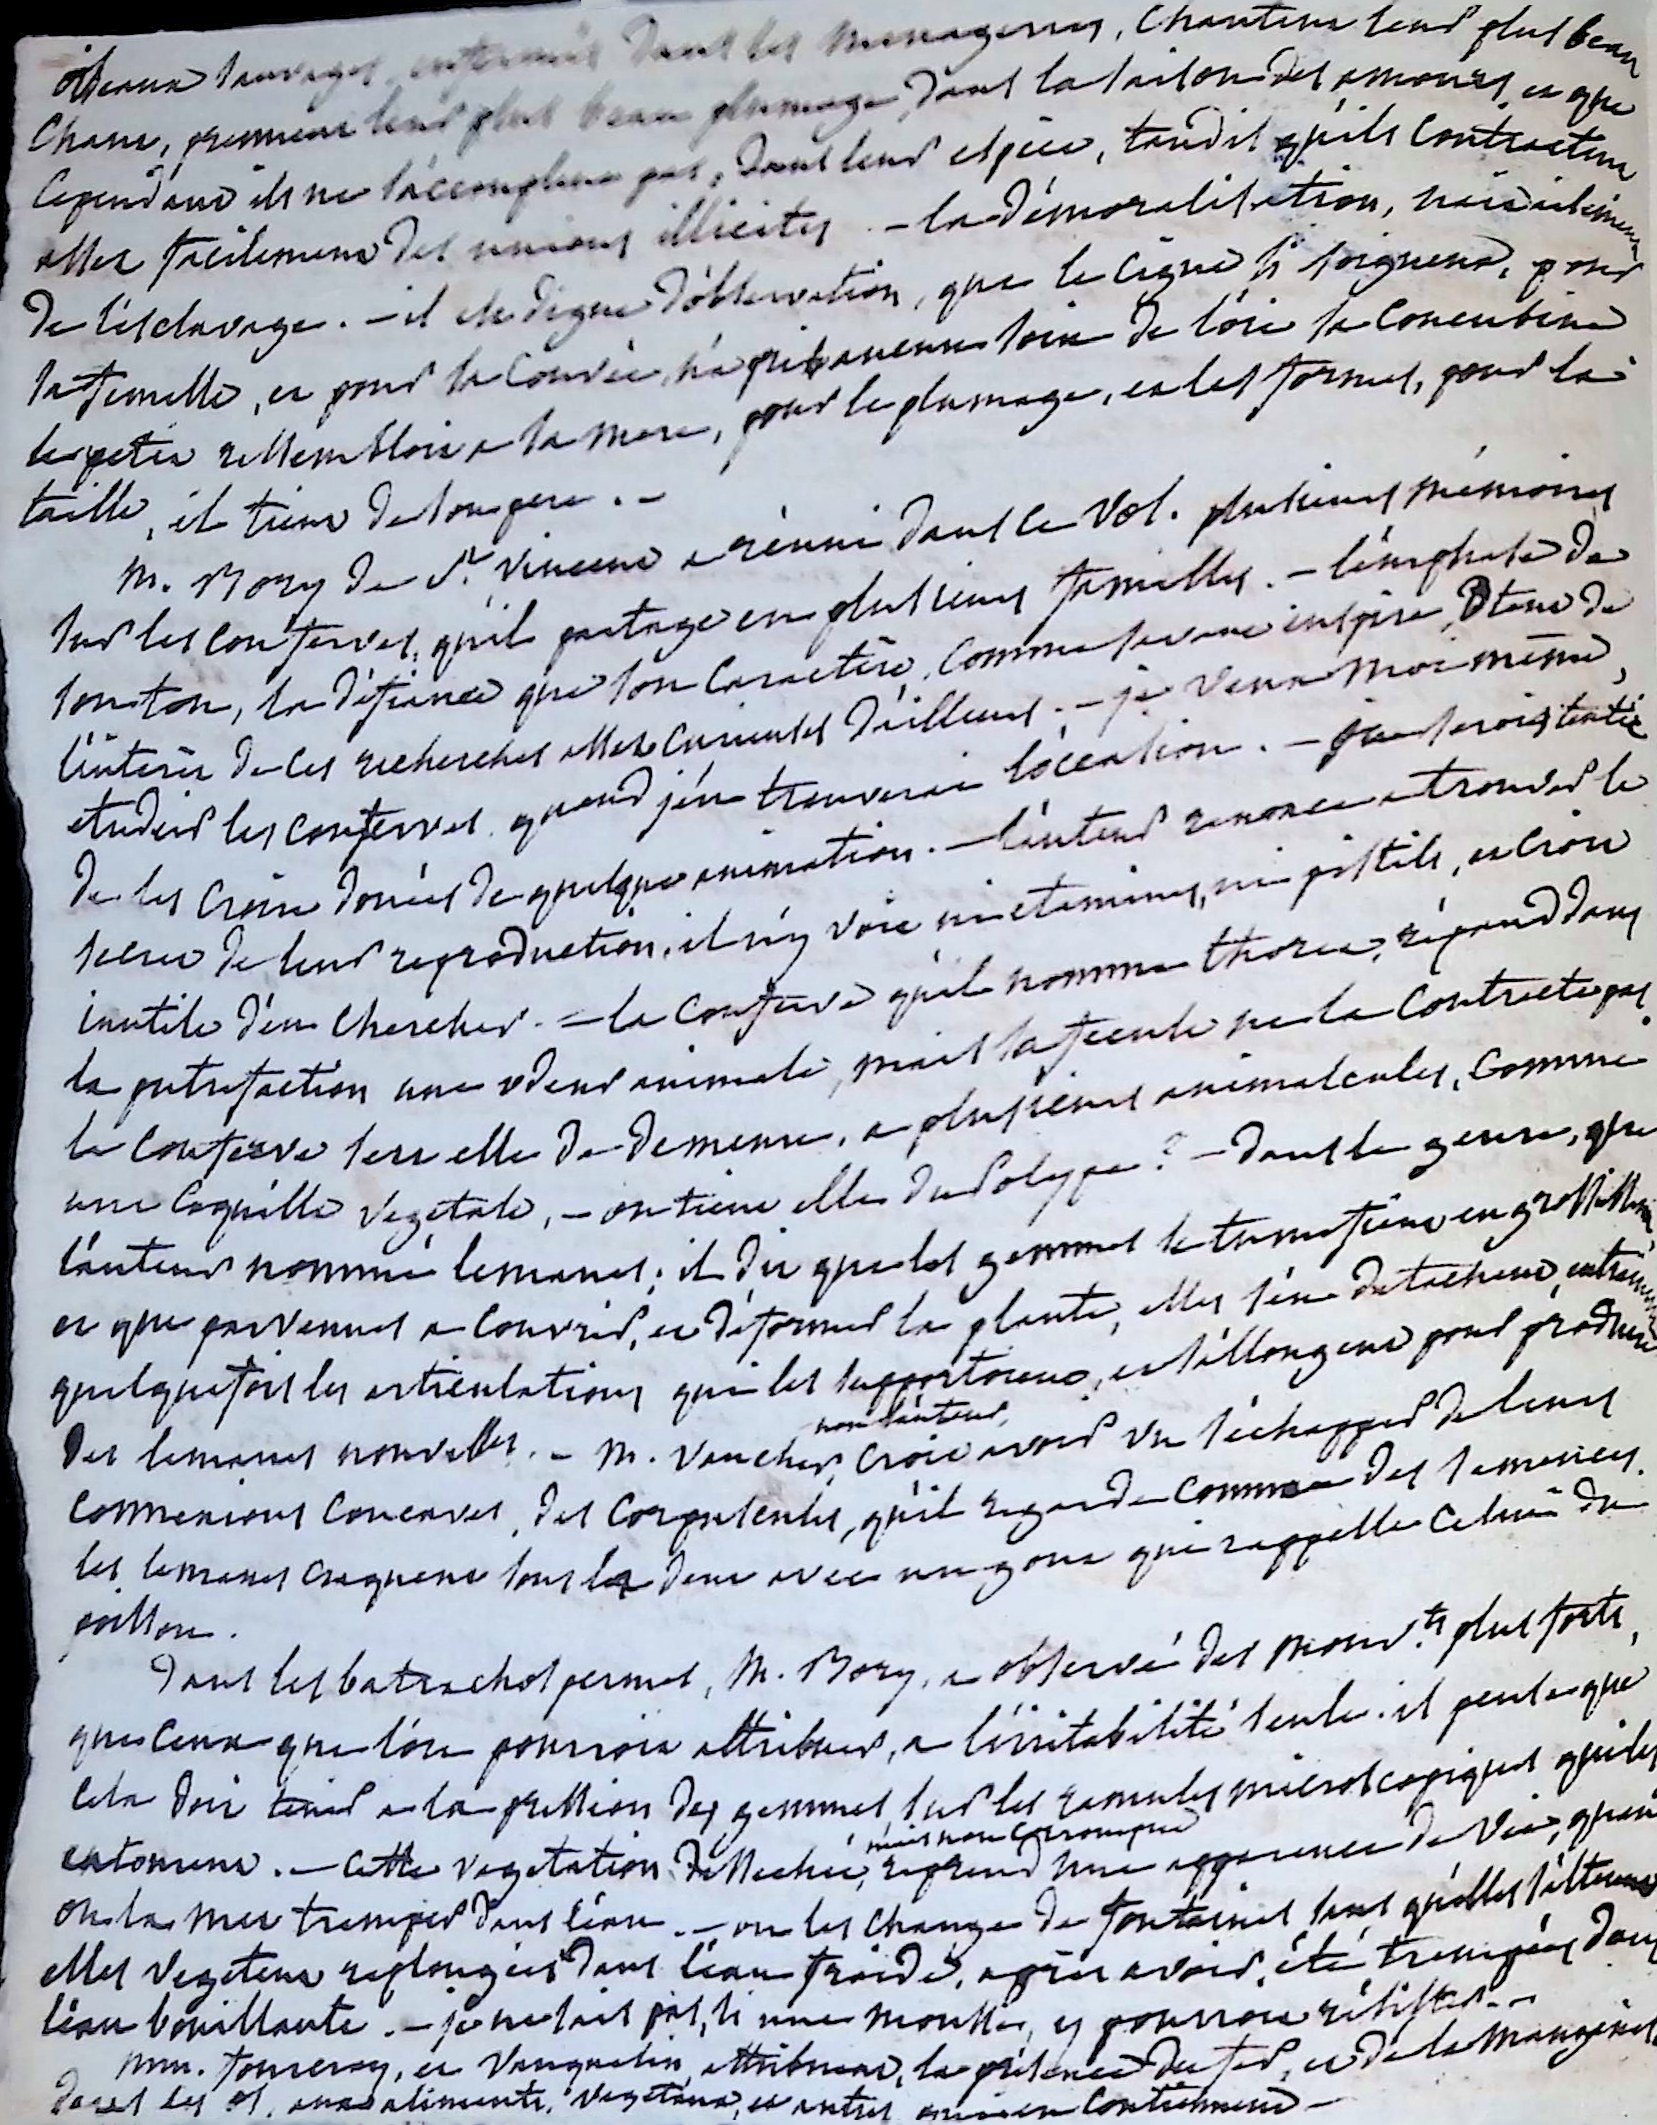 oiseaux sauvages enfermés dans les menageries, chantent leur plus beau
chant, prennent leur plus beau plumage, dans la saison des amours, et que
cependant ils ne s'accouplent pas, dans leur espèce, tandis qu'ils contractent
assez facilement des unions illicites. – la démoralisation, naît aisément
de l'esclavage. – il est digne d'observation, que le cigne si soigneux, pour
sa femelle, et pour sa couvée, n'a pris aucun soin de l'oie sa concubine
le petit ressembloit a sa mere, pour le plumage, et les formes, pour la
taille, il tient de son pere. –
M. Bory de St. Vincent a réuni dans ce vol. plusieurs mémoires
sur les conferves, qu'il partage en plusieurs familles. – l'emphase de
son ton, la défiance que son caractère, comme savant inspire, ôtent de
l'intérêt de ces recherches assez curieuses d'ailleurs. – je veux moi même,
etudier les conferves quand j'en trouverai l'occasion. – je serois tentée
de les croire douées de quelque animation. – l'auteur renonce a trouver le
secret de leur reproduction, il n'y voit ni etamines, ni pistils, et croit
inutile d'en chercher. – la conferve qu'il nomme thorea, répand dans
la putrefaction une odeur animale, mais sa fecule ne la contracte pas.
la conferve sert elle de demeure, a plusieurs animalcules, comme
une coquille vegetale, – ou tient elle du polype? – dans le genre, que
l'auteur nomme lemanes, il dit que les gemmes se tumefient en grossissant,
et que parvenues a couvrir, et déformer la plante, elles s'en detachent, entrainent
quelquefois les articulations qui les supportoient, et s'allongent pour produire
des lemanes nouvelles. – M. Vaucher, non l'auteur, croit avoir vu s'échapper de leurs
connexions concaves, des corpuscules, qu'il regarde comme des semences.
les lemanes craquent sous la dent avec un gout qui rappelle celui du
poisson.
Dans les batrachospermes, M. Bory, a observé des mouv.ts plus forts,
que ceux que l'on pourroit attribuer, a l'irritabilité seule. il pense que
cela doit tenir a la pression des gemmes sur les ramules microscopiques qui les
entourent. – cette vegetation dessechée, mais non corrompue, reprend une apparence de vie, quand
on la met tremper dans l'eau. – on les change de fontaines sans qu'elles s'altèrent
elles vegetent replongées dans l'eau froide, après avoir été trempées dans
l'eau bouillante. – je ne sais pas, si une mousse, y pourroit résister. –
Mm. Fourcroy, et Vauquelin, attribuent, la présence du fer, et de la manganèse
dans les os, aux aliments, vegetaux, et autres qui en contiennent –